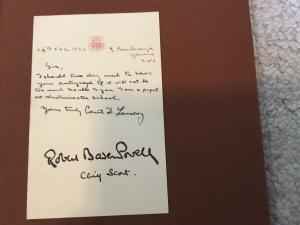 Sir,
I should like very much to have
your autograph, if it will not be
too much trouble to you. I am a pupil
at Westminster School.
Yours truly Count
Robert Baden Powell
Chief Scout.